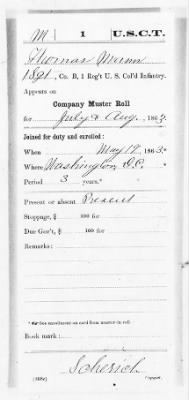 M 1 U.S.C.T.
Thomas Mann
Co. B, 1 Reg't U. S. Col'd Infantry.
Appears on
Company Muster Roll
for July & Aug., 1863.
Joined for duty and enrolled:
When May 19, 1863.*
Where Washington, D.C.
Period 3 years.*
Present or absent Present
Stoppage, $ 100 for
Due Gov't, $ 100 for
Remarks:
*See enrollment on card from muster-in roll.
Book mark:
Copyist.